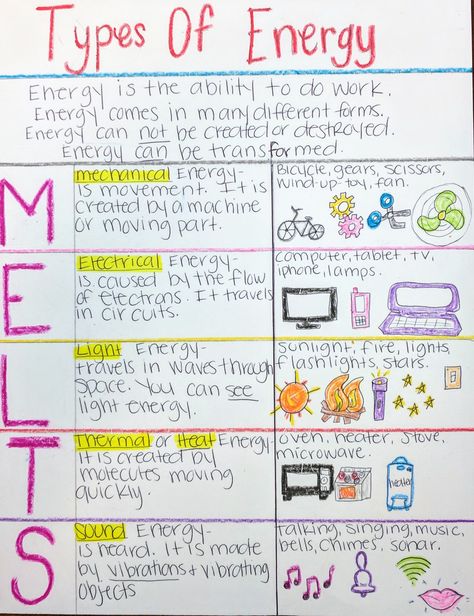 Types Of Energy
Energy is the ability to do work.
Energy comes in many different forms.
Energy can not be created or destroyed.
Energy can be transformed.
M
mechanical Energy-
is movement. It is
created by a machine
or moving part.
Bicycle, gears, scissors,
wind-up toy, fan.
E
Electrical Energy-
is caused by the flow
of electrons. It travels
in circuits.
computer, tablet, tv,
iphone, lamps.
L
Light Energy-
travels in waves through
space. You can see
light energy.
sunlight, fire, lights,
flashlights, stars.
T
Thermal or Heat Energy-
it is created by
molecules moving
quickly.
oven, heater, stove,
microwave.
heater
S
Sound Energy-
is heard. It is made
by vibrations & vibrating
objects
talking, singing, music,
bells, chimes, sonar.